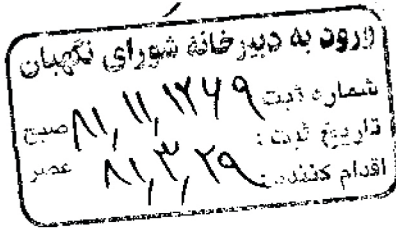 ورود به دبیرخانه شورای نگهبان
شماره ثبت ۸۱,۱۱,۱۲۶۹ صبح
تاریخ ثبت : ۸۱,۳,۲۹ عصر
اقدام کننده: